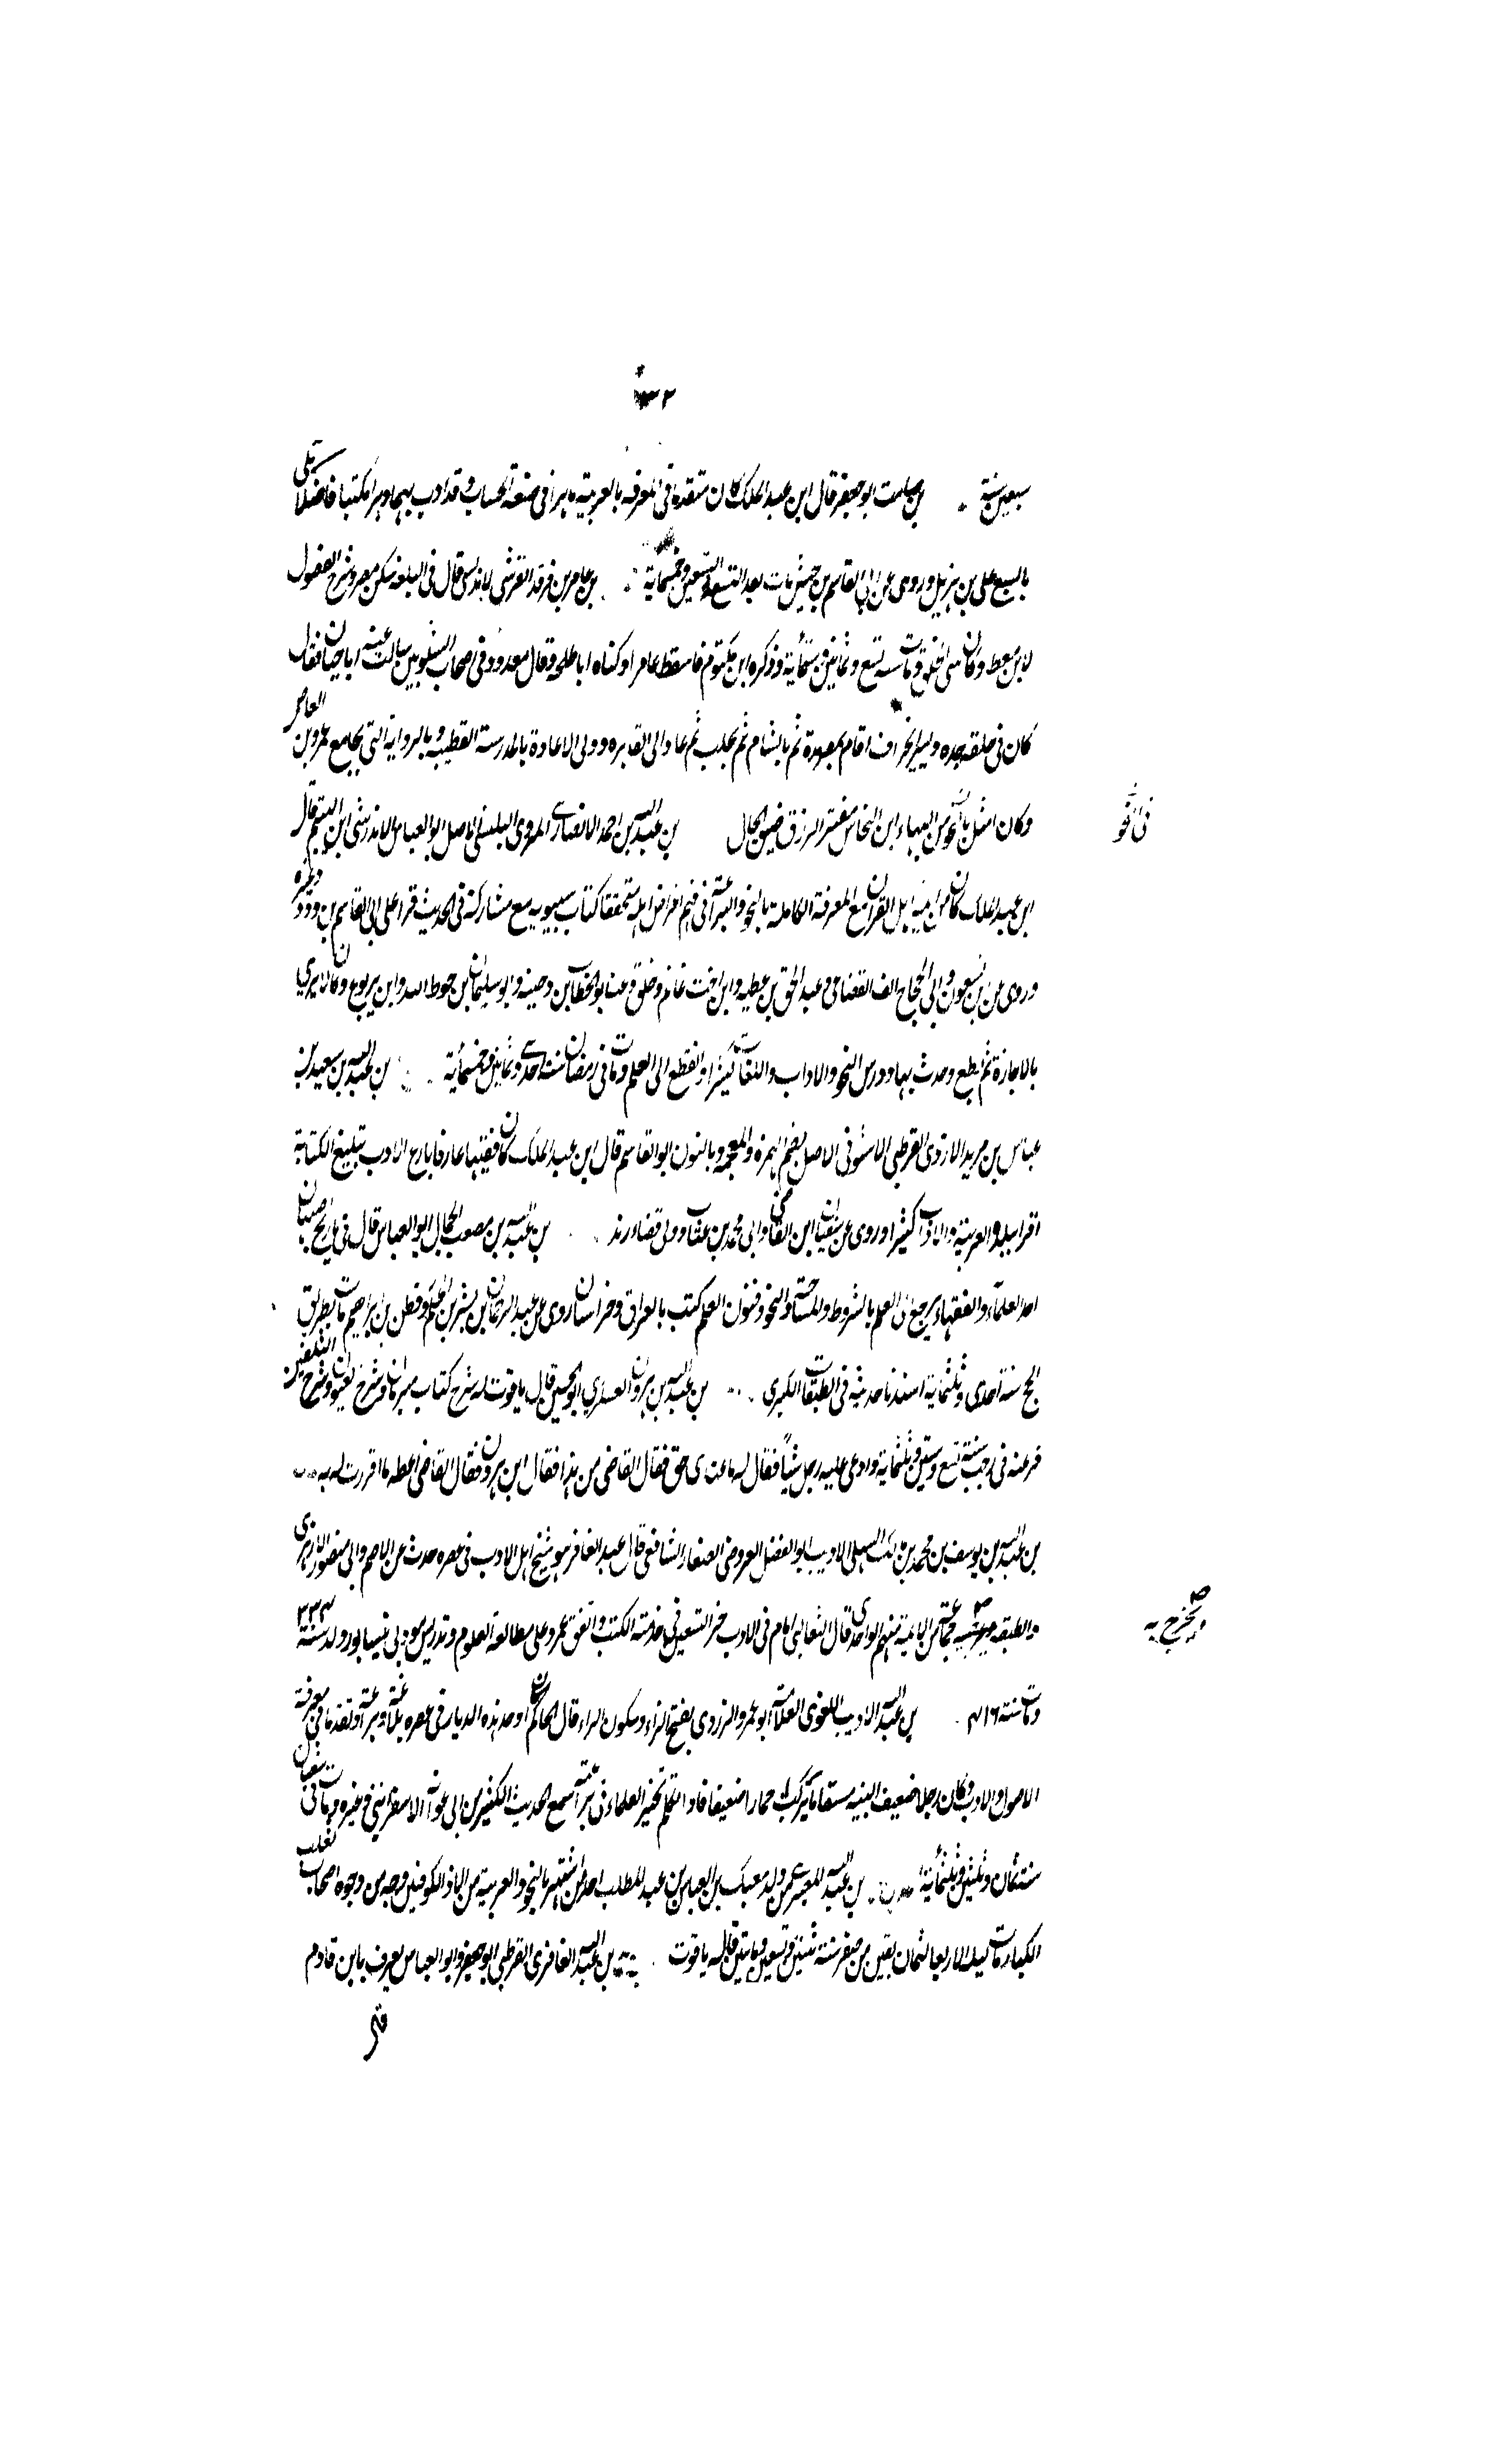 ٣٢
سبعين سنة بن صامت ابو جعفر قال ابن عبد الملك كان متقدما فى المعرفة بالعربية ماهرا فى صنعة الحساب وقد ادب بهما وبرا مكتبا فاضلا تلى
بالسبع على بن هزيل وروى عن ابى القاسم بن حبيش مات بعد التسعة والتسعين وخمسماية بن عامر بن فرقد القرشى الاندلسى قال فى البلغة سكن مصر وشرح الفصول
لابن معط وكان سئى الخلق ومات سنة تسع وثمانين وستمأية وذكره ابن مكتوم فاسقط عامرا وكناه ابا طلحة وقال معدود فى اصحاب الشلوبين سالت عنه اباحيان فقال
كان فى خلقه حده ويسير انحراف اقام بمصر مدة ثم بالشام ثم بحلب ثم عاد الى القاهره وولى الاعادة بالمدرسة القطبية وبالزواية التى بجامع عمرو بن العاص
وكان امثل بالنحو من البهاء ابن النحاس مقتر الرزق ضيق الحال بن عبد الله بن احمد الانصارى المروى البلنسى الاصل ابو العباس الاندرشى ابن اليتيم قال
فى النحو
ابن عبد الملك كان من ائمة اهل القرآن مع المعرفة الكاملة بالنحو والبراعة فى فهم اغراض اهله متحققا كتاب سيبويه مع مشاركة فى الحديث قرا على ابى القاسم بن ورد وغيره
وروى عن ابن يسعون وابى الحجاج القضاعى وعبد الحق بن عطيه وابن اخت غانم وخلق وعنه ابو الخطاب بن دحية وابو سليمان بن حوط الله وابن يربوع وكان لا يرى
بالاجازة ثم رجع وحدث بها ودرس النحو والاداب واللغات كثيرا وانقطع الى العلم ومات فى رمضان سنة احدى وثمانين وخمسمأية بن عبد الله بن سعيد بن
عباس بن مرير الازدى القرطبى الاشونى الاصل بضم الهمزة والمعجمة وبالنون ابو القاسم قال ابن عبد الملك كان فقيها عارفا بارع الادب بليغ الكتابة
اقرا ببلده العربية والاداب كثيرا وروى عن سفيان ابن القاضى وابى محمد بن عتاب وولى قضاء رند بن عبد الله بن مصعب الجمال ابو العباس قال فى تاريخ اصبهان
احد العلماء والفقهاء يرجع الى العلم بالشروط والمساحة والنحو وفنون العلم كتب بالعراق وخراسان روى عن عبد الرحمان بن بشر بن الحكم وقطن بن ابراهيم مات بطريق
الحج سنة احدى وثلثماية اسندنا حديثه فى الطبقات الكبرى بن عبد الله بن هرون العسكرى ابو الحسين قال ياقوت له شرح كتاب مبرمان وشرح العيون وشرح التلقين
فرغ منه فى رجب سنة تسع وستين وثلثماية وادعى عليه رجل شيأ فقال له ما عندى حق فقال القاضى من هذا فقال ابن هرون فقال القاضى اعطه ما اقررت له به
بن عبد الله بن يوسف بن محمد بن مالك السهلى الاديب ابو الفضل العروضى الصفار الشافعى قال عبد الغافر هو شيخ اهل الادب فى عصره حدث عن الاصم وابى منصور الازهرى
والطبقة وتخرج به جماعة من الائمة منهم الواحدى قال الثعالبى امام فى الادب خنق التسعين فى خدمة الكتب وانفق عمره على مطالعة العلوم وتدريس مودبى نيسابور ولد سنة ٣٣٤
وتخرج به صح
ومات سنة ٤١٦ بن عبد الله الاديب اللغوى العلامة ابو عمرو الزردى بفتح الزاء وسكون الراء قال الحاكم كان اوحد هذه الديار فى عصره بلاغة وبراعة وتقدما فى معرفة
الاصول والادب وكان رجلا ضعيف البنيه مسقاما يركب حمارا ضعيفا فاذا تكلم تحير العلماء فى براعته سمع الحديث الكثير من ابى عوانة الاسفراينى وغيره ومات فى شعبان
سنة ثمان وثلثين وثلثمأية بن عبد الله المعبدى من ولد معبد بن العباس بن عبد المطلب احد من اشتهر بالنحو والعربية من الكوفيين وجه من وجوه اصحاب ثعلب
الكبار مات ليلة الاربعا لثمان بقين من صفر سنة ثنتين وتسعين ومايتين قاله ياقوت بن عبد الله الغافقى القرطبى ابو جعفر وابو العباس يعرف بابن قادم
قر